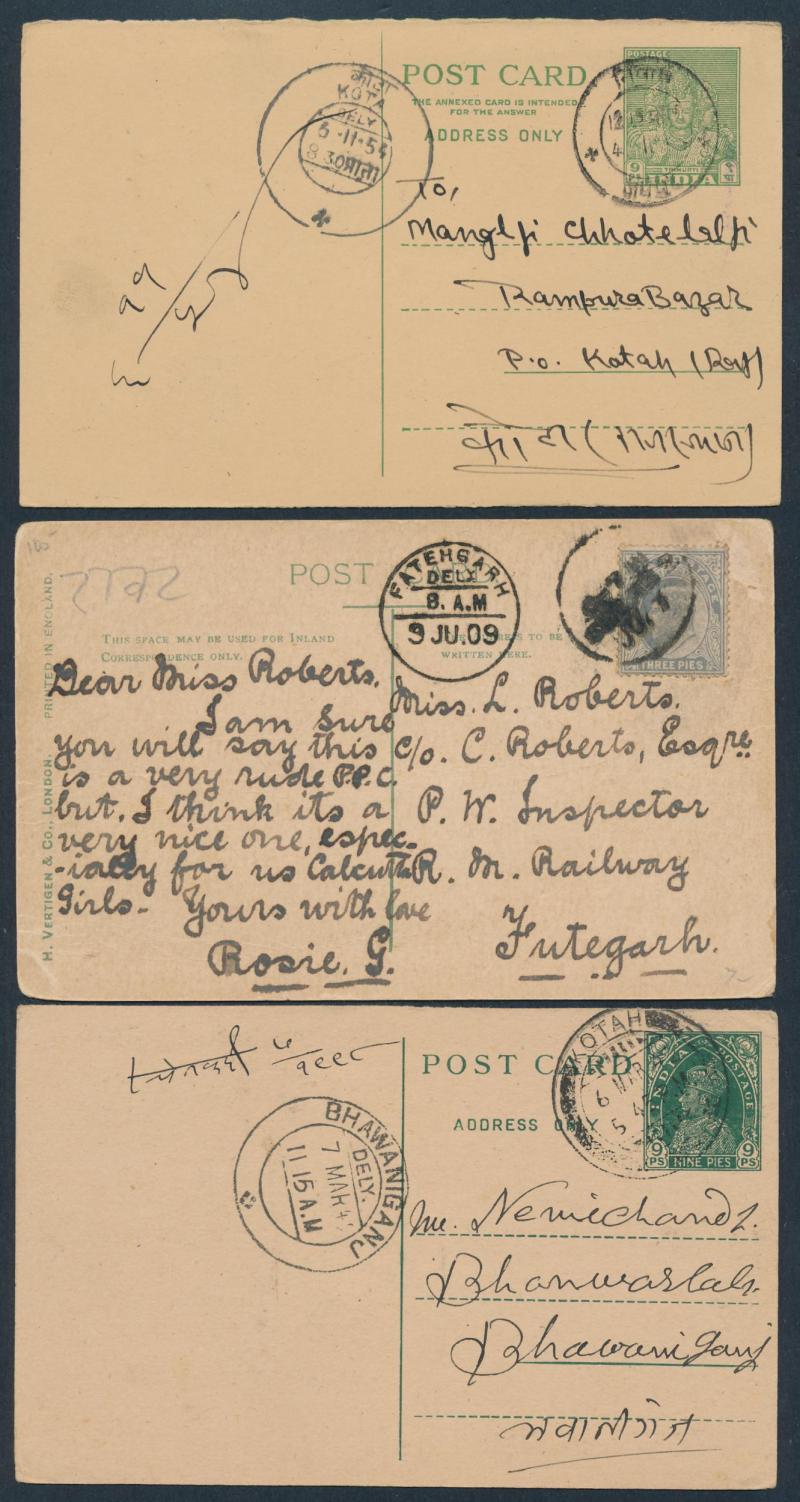 POST CARD
THE ANNEXED CARD IS INTENDED
FOR THE ANSWER
ADDRESS ONLY
POSTAGE
9
TRIMURTI
INDIA
कोटा
KOTA
DELY
6-11-54
8 30
To,
Manglji Chhotelalji
Rampura Bazar
P.o. Kotah (Raj)
कोटा (राजस्थान)
105
H. VERTIGEN & CO., LONDON. PRINTED IN ENGLAND.
POST
THIS SPACE MAY BE USED FOR INLAND
CORRESPONDENCE ONLY.
TO BE
WRITTEN HERE.
FATEHGARH
DELY
8. A.M
9 JU.09
THREE PIES
Dear Miss Roberts.
I am sure
you will say this
is a very rude P.P.C.
but, I think its a
very nice one, espec-
-ialey for us Calcutta
Girls- Yours with love
Rosie. G.
Miss. L. Roberts.
C/o. C. Roberts, Esqre.
P. W. Inspector
R. M. Railway
Futegarh.
POST CARD
ADDRESS ONLY
KOTAH
6 MAR
INDIA POSTAGE
9 PS
NINE PIES
9 PS
BHAWANIGANJ
DELY.
7 MAR 4
11 15 A.M
Nemichand
Bhanwarlal
Bhawaniganj
भवानीगंज